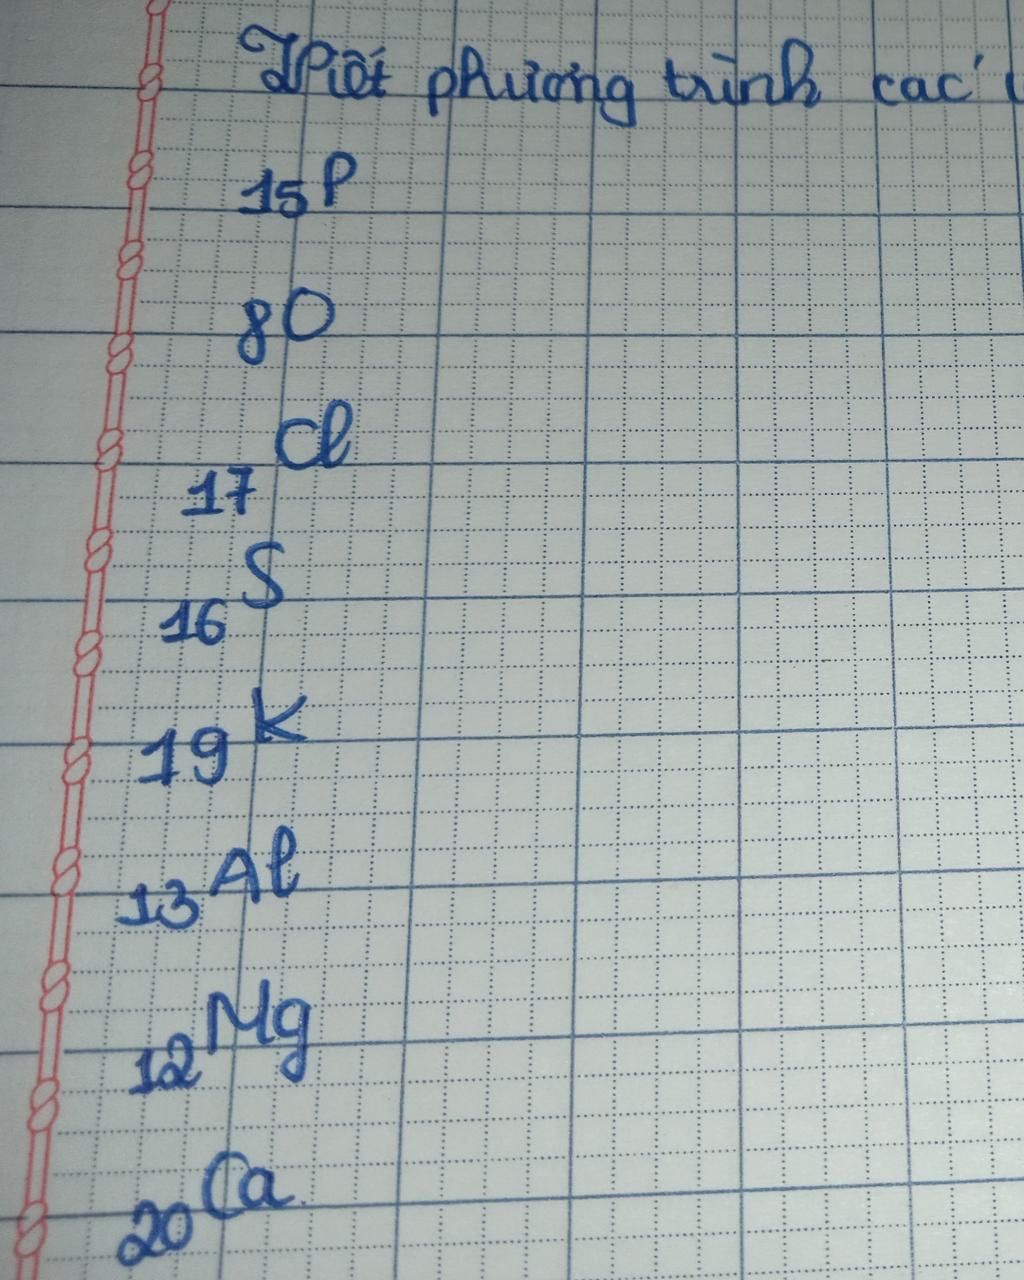 Viết phương trình các
15P
8O
17Cl
16S
19K
13Al
12Mg
20Ca